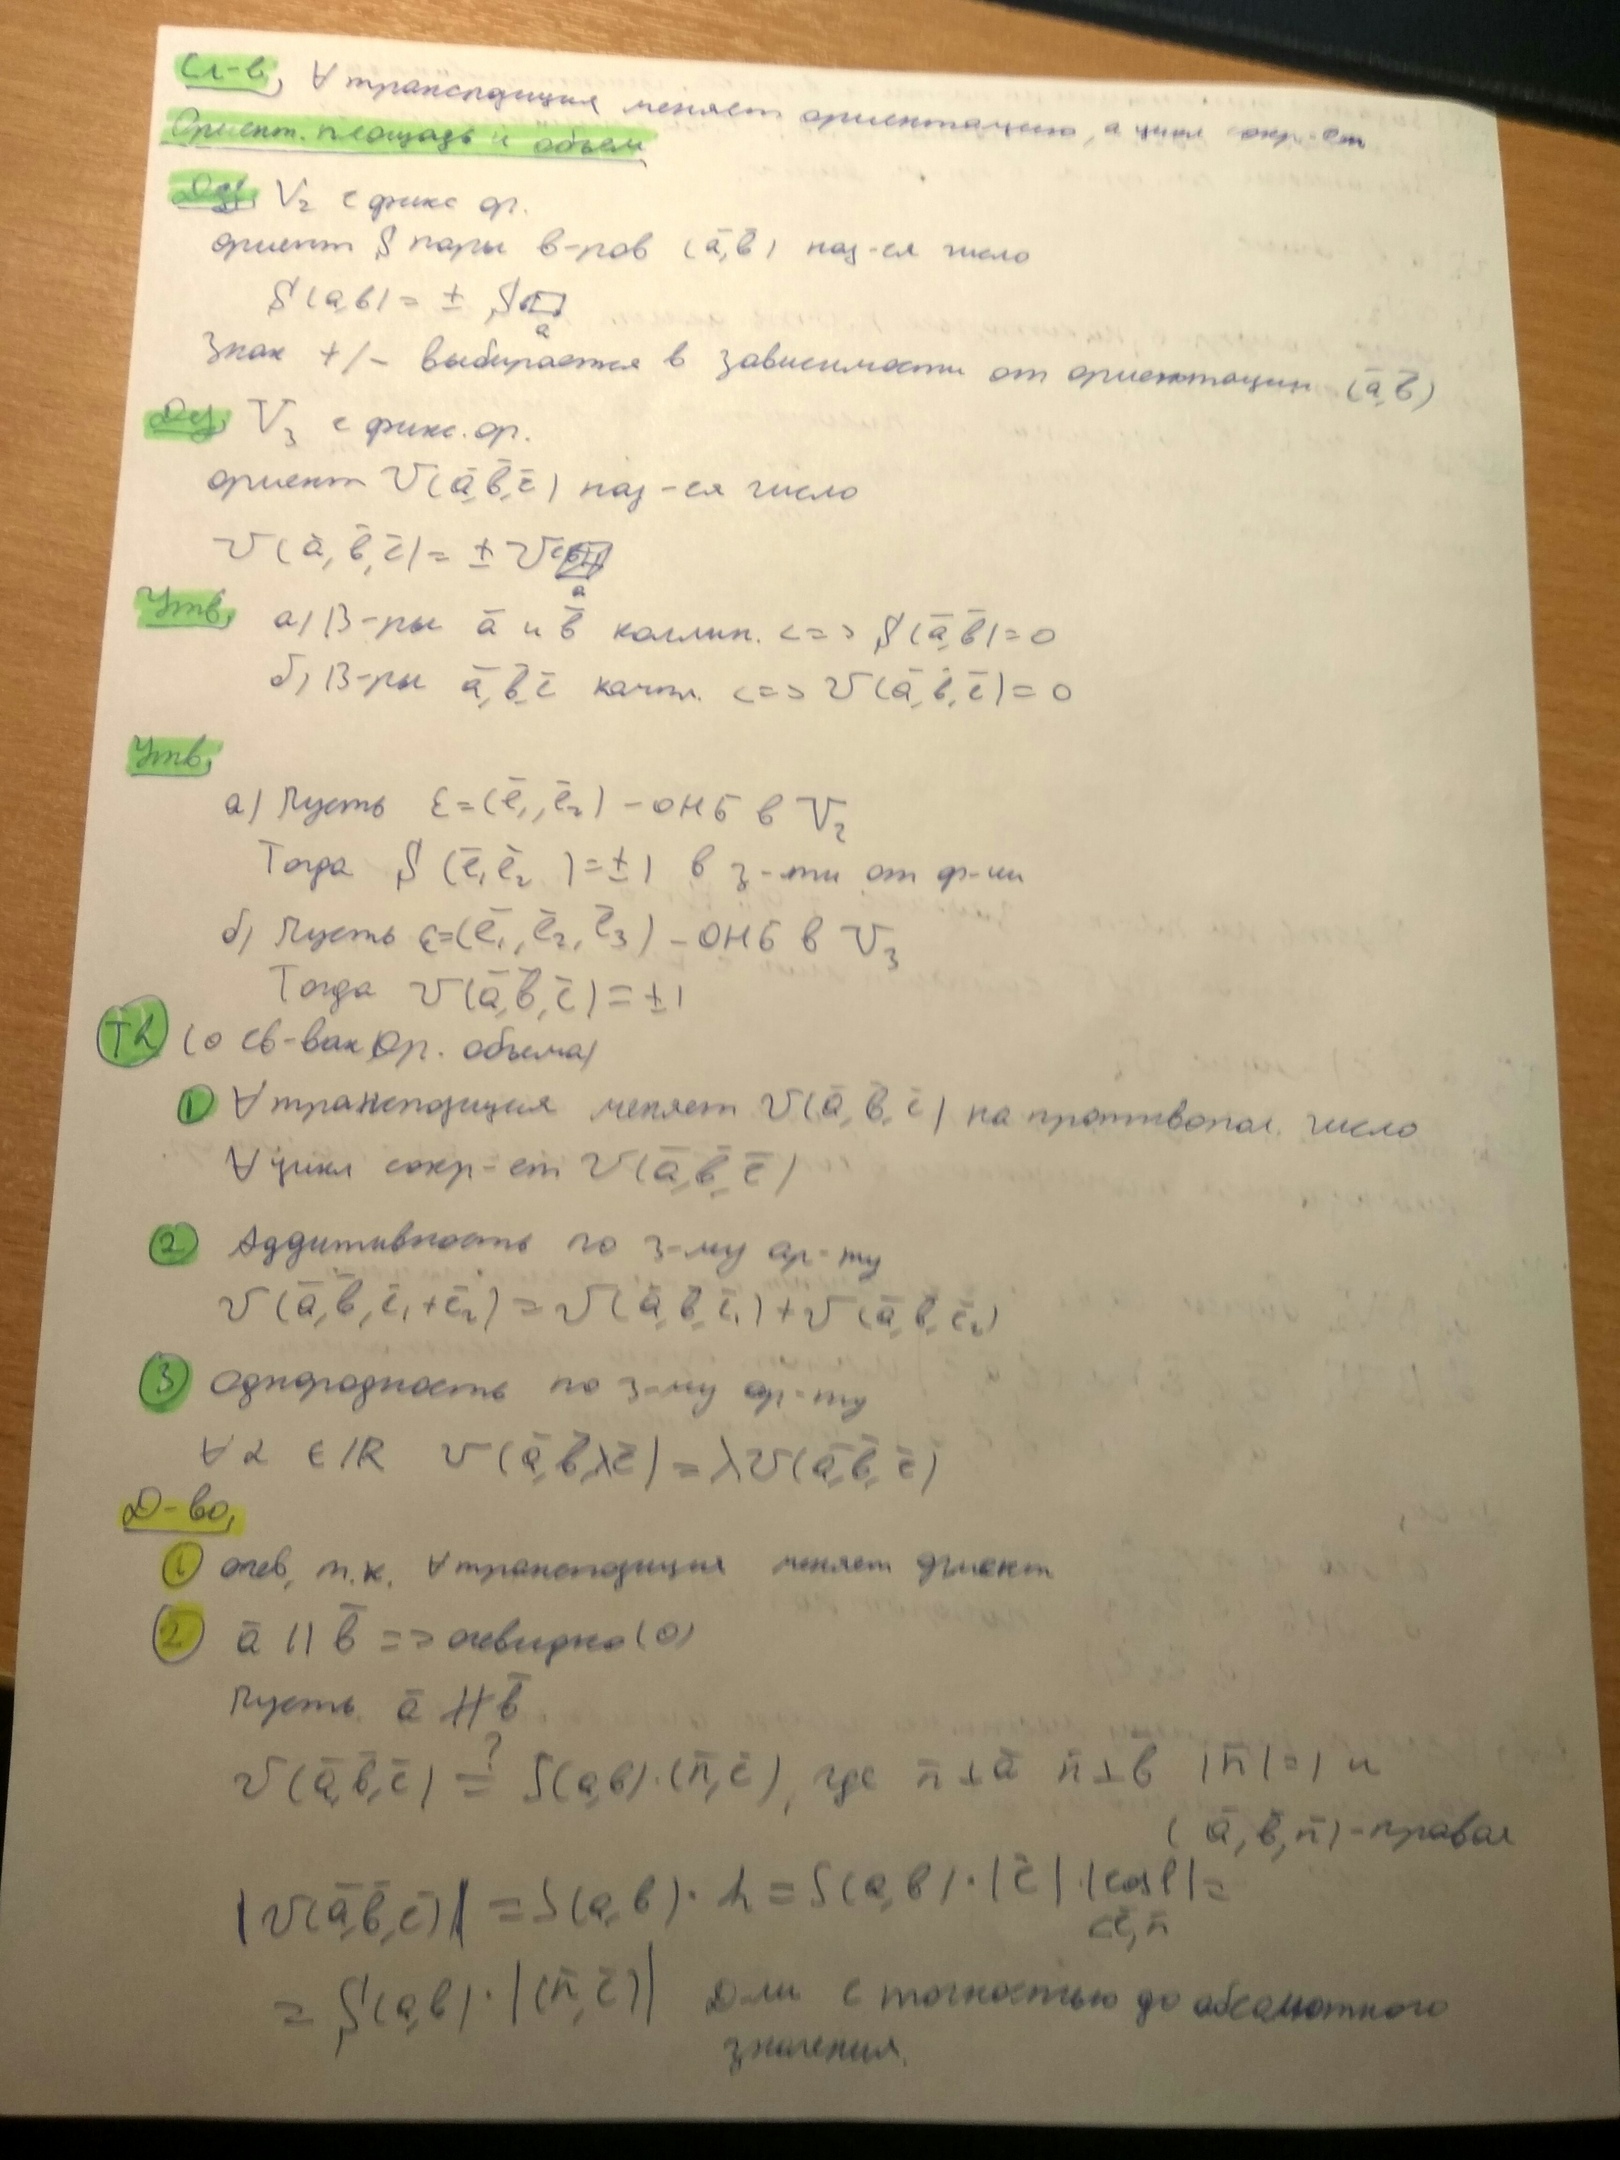 Сл-в, ∀ транспозиция меняет ориентацию, а цикл сохр-ет
Ориент. площадь и объем
Def. V₂ с фикс ор.
ориент S пары в-ров (ā, b̄) наз-ся число
S(a,b) = ± S
Знак +/- выбирается в зависимости от ориентации (ā, b̄)
Def. V₃ с фикс. ор.
ориент V(ā, b̄, c̄) наз-ся число
V(ā, b̄, c̄) = ± V
Утв. а) В-ры ā и b̄ коллин. <=> S(ā, b̄) = 0
б) В-ры ā, b̄, c̄ комп. <=> V(ā, b̄, c̄) = 0
Утв.
а) Пусть ε = (ē₁, ē₂) - ОНБ в V₂
Тогда S(ē₁ ē₂) = ±1 в з-ти от
б) Пусть ε = (ē₁, ē₂, ē₃) - ОНБ в V₃
Тогда V(ā, b̄, c̄) = ±1
Th (о св-вах ор. объема)
1 ∀ транспозиция меняет V(ā, b̄, c̄) на противопол. число
∀ цикл сохр-ет V(ā, b̄, c̄)
2 Аддитивность по 3-му ар-ту
V(ā, b̄, c̄₁ + c̄₂) = V(ā, b̄, c̄₁) + V(ā, b̄, c̄₂)
3 Однородность по 3-му ар-ту
∀ α ∈ ℝ V(ā, b̄, λc̄) = λV(ā, b̄, c̄)
Д-во,
1 очев, т.к. ∀ транспозиция меняет ориент
2 ā || b̄ => очевидно (0)
Пусть ā ∦ b̄
V(ā, b̄, c̄) =? S(a,b)·(n̄, c̄), где n̄ ⊥ ā n̄ ⊥ b̄ |n̄| = 1 и
(ā, b̄, n̄) - правая
|V(ā, b̄, c̄)| = S(a,b)·h = S(a,b)·|c̄|·|cos φ| =
c̄, n̄
= S(a,b)·|(n̄, c̄)| Д-ли с точностью до абсолютного
значения.